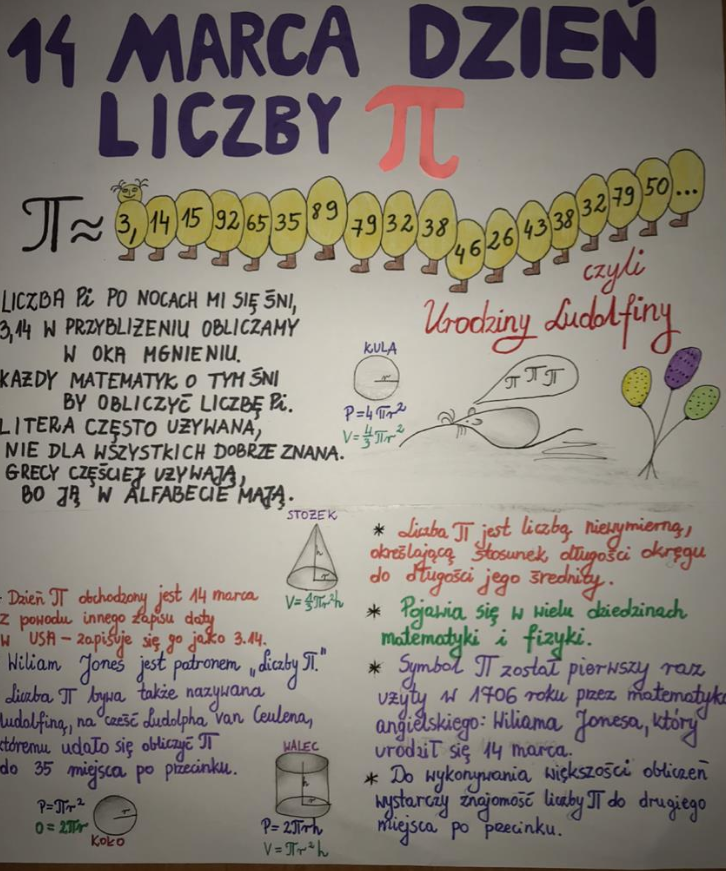 14 MARCA DZIEŃ
LICZBY π
π≈ 3, 14 15 92 65 35 89 79 32 38 46 26 43 38 32 79 50 ...
czyli
Urodziny Ludolfiny
LICZBA Pi PO NOCACH MI SIĘ ŚNI,
3,14 W PRZYBLIŻENIU OBLICZAMY
W OKA MGNIENIU.
KAŻDY MATEMATYK O TYM ŚNI
BY OBLICZYĆ LICZBĘ Pi.
LITERA CZĘSTO UŻYWANA,
NIE DLA WSZYSTKICH DOBRZE ZNANA.
GRECY CZĘŚCIEJ UŻYWAJĄ,
BO JĄ W ALFABECIE MAJĄ.
KULA
r
P=4πr²
V=4/3πr²
π π π
STOŻEK
h
r
V=4/3πr²h
- Dzień π obchodzony jest 14 marca
z powodu innego zapisu daty
w USA - zapisuje się go jako 3.14.
Wiliam Jones jest patronem „Liczby π."
Liczba π bywa także nazywana
ludolfiną, na cześć Ludolpha van Ceulena,
któremu udało się obliczyć π
do 35 miejsca po przecinku.
P=πr²
O=2πr
r
KOŁO
WALEC
h
r
P=2πrh
V=πr²h
* Liczba π jest liczbą niewymierną,
określającą stosunek długości okręgu
do długości jego średnicy.
* Pojawia się w wielu dziedzinach
matematyki i fizyki.
* Symbol π został pierwszy raz
użyty w 1706 roku przez matematyka
angielskiego: Wiliama Jonesa, który
urodził się 14 marca.
* Do wykonywania większości obliczeń
wystarczy znajomość liczby π do drugiego
miejsca po przecinku.